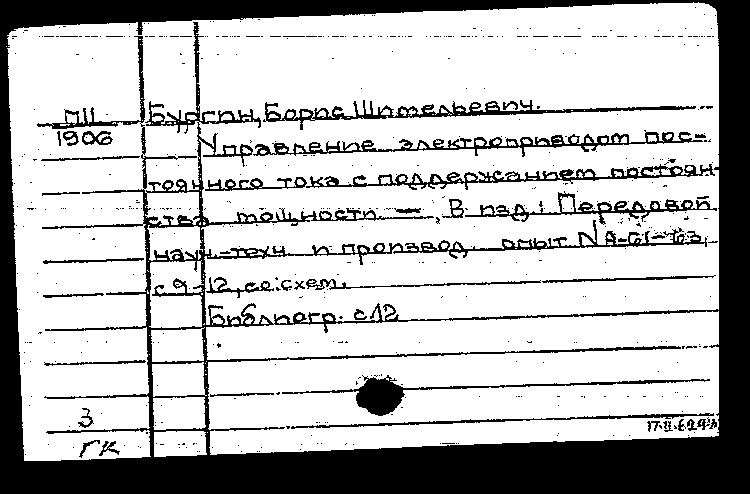 П11 Бургин, Борис Шмельевич.
1906 Управление электроприводом пос-
тоянного тока с поддержанием постоян-
ства мощности — , В изд: Передовой
науч-техн и производ опыт N
с 9-12, со схем.
Библиогр. с.12
3
ГК